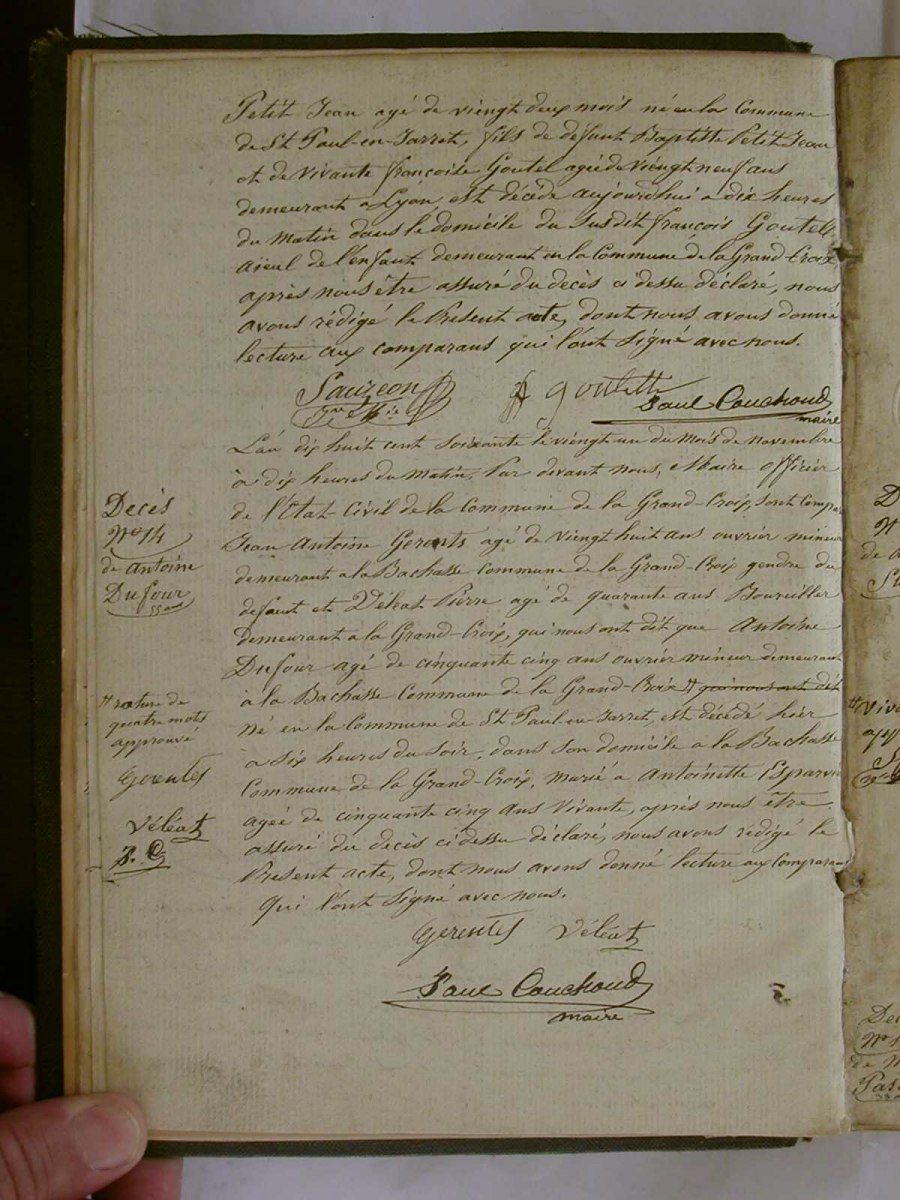 Petit Jean agé de viengt deux mois né en la Commune
de St Paul-en-Jarret, fils de defunt Baptiste Petit Jean
et de vivante françoise Goutel agée de viengt neuf ans
demeurant a Lyon, est décédé aujourd'hui a dix heures
du matin dans le domicile du Susdit françois Goutel
aieul de l'enfant demeurant en la Commune de la Grand-Croix
après nous être assuré du decès ci dessu déclaré, nous
avons rédigé le Présent acte, dont nous avons donné
lecture aux comparans qui l'ont Signé avec nous.
Sauzéon goutelle
Paul Couchoud
maire
L'an dix huit cent soixante le viengt un du mois de novembre
à dix heures du matin, Par devant nous, Maire officier
de l'Etat-Civil de la Commune de la Grand-Croix, sont Compa
Jean Antoine Gerents agé de viengt huit ans ouvrier mineur
demeurant a la Bachasse Commune de la Grand-Croix gendre du
defunt et Déléat Pierre agé de quarante ans
demeurant a la Grand-Croix, qui nous ont dit que Antoine
Dufour agé de cinquante cinq ans ouvrier mineur demeurant
à la Bachasse Commune de la Grand-Croix # qui nous ont dit
né en la Commune de St Paul-en-Jarret, est décédé hier
a six heures du soir, dans son domicile a la Bachasse
Commune de la Grand-Croix, marié a Antoinette Esparvin
agée de cinquante cinq ans Vivante, après nous être
assuré du decès ci dessu déclaré, nous avons rédigé le
Présent acte, dont nous avons donné lecture aux Comparans
qui l'ont Signé avec nous.
Gerentes Véléat
Paul Couchoud
maire
Decès
No 14
de Antoine
Dufour
55 ans
# rature de
quatre mots
approuvé
Gerentes
Véléat
P. C